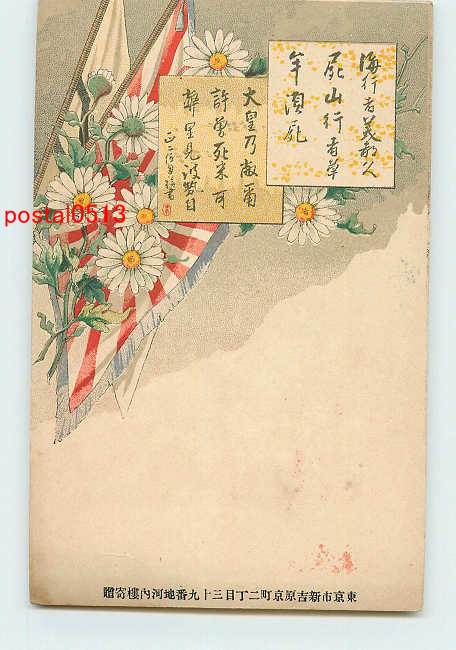 海行者美都久
屍山行者草
牟須屍
大皇乃敝爾
許曽死米可
敝里見波勢自
postal0513
東京市新吉原京町二丁目三十九番地河內樓寄贈